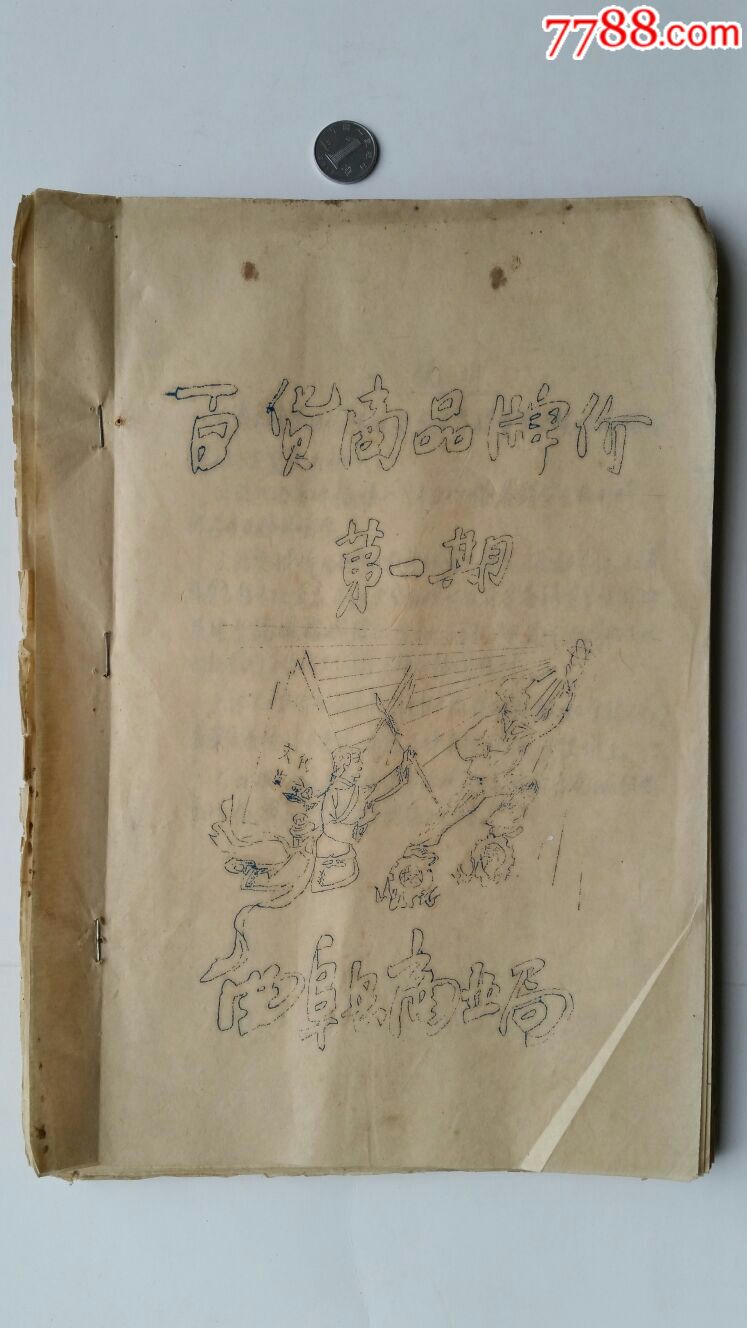 7788.com
百货商品牌价
第一期
文化
曲阜县商业局